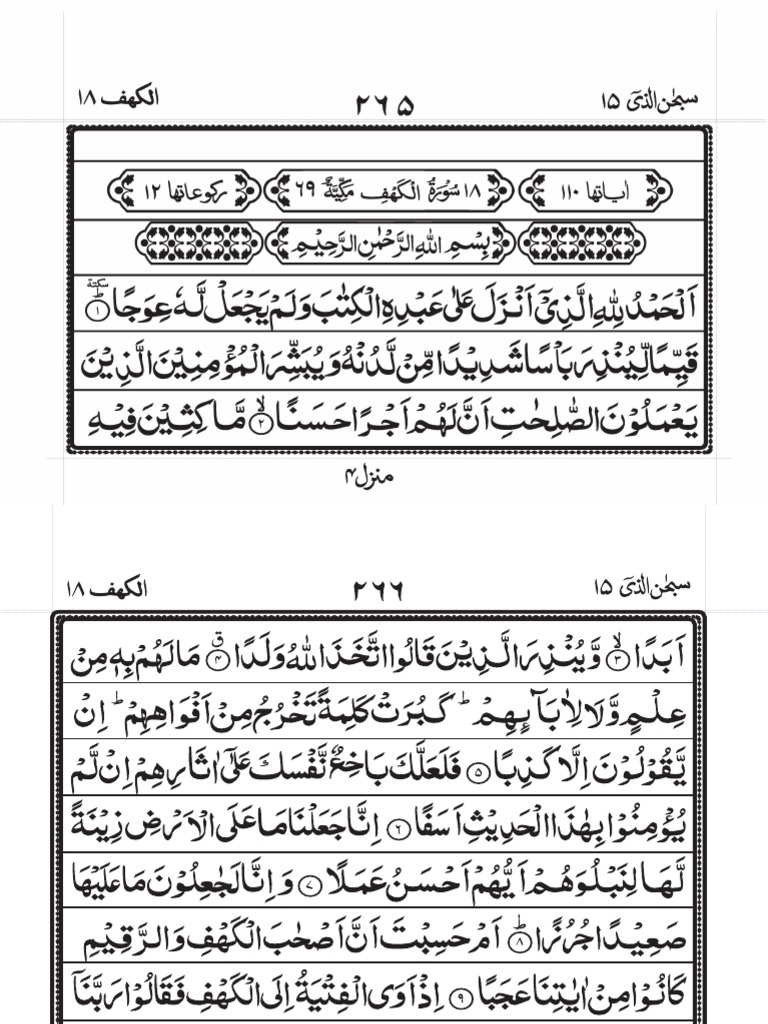 سبحٰن الذیۤ ۱۵ ۲۶۵ الکهف ۱۸
اٰیاتها ۱۱۰ ۱۸ سُوْرَۃُ الْکَهْفِ مَکِّیَّۃٌ ۶۹ رکوعاتها ۱۲
بِسْمِ اللّٰهِ الرَّحْمٰنِ الرَّحِیْمِ
اَلْحَمْدُ لِلّٰهِ الَّذِیْۤ اَنْزَلَ عَلٰی عَبْدِهِ الْکِتٰبَ وَلَمْ یَجْعَلْ لَّهٗ عِوَجًا ؕ سكتة ﴿۱﴾
قَیِّمًا لِّیُنْذِرَ بَاْسًا شَدِیْدًا مِّنْ لَّدُنْهُ وَ یُبَشِّرَ الْمُؤْمِنِیْنَ الَّذِیْنَ
یَعْمَلُوْنَ الصّٰلِحٰتِ اَنَّ لَهُمْ اَجْرًا حَسَنًا ۙ﴿۲﴾ مَّاکِثِیْنَ فِیْهِ
منزل ۴
سبحٰن الذیۤ ۱۵ ۲۶۶ الکهف ۱۸
اَبَدًا ۙ﴿۳﴾ وَّ یُنْذِرَ الَّذِیْنَ قَالُوا اتَّخَذَ اللّٰهُ وَلَدًا ٭ۗ ﴿۴﴾ مَا لَهُمْ بِهٖ مِنْ
عِلْمٍ وَّلَا لِاٰبَآىِٕهِمْ ؕ کَبُرَتْ کَلِمَةً تَخْرُجُ مِنْ اَفْوَاهِهِمْ ؕ اِنْ
یَّقُوْلُوْنَ اِلَّا کَذِبًا ﴿۵﴾ فَلَعَلَّکَ بَاخِعٌ نَّفْسَکَ عَلٰۤی اٰثَارِهِمْ اِنْ لَّمْ
یُؤْمِنُوْا بِهٰذَا الْحَدِیْثِ اَسَفًا ﴿۶﴾ اِنَّا جَعَلْنَا مَا عَلَی الْاَرْضِ زِیْنَةً
لَّهَا لِنَبْلُوَهُمْ اَیُّهُمْ اَحْسَنُ عَمَلًا ﴿۷﴾ وَ اِنَّا لَجٰعِلُوْنَ مَا عَلَیْهَا
صَعِیْدًا جُرُزًا ؕ﴿۸﴾ اَمْ حَسِبْتَ اَنَّ اَصْحٰبَ الْکَهْفِ وَ الرَّقِیْمِ
کَانُوْا مِنْ اٰیٰتِنَا عَجَبًا ﴿۹﴾ اِذْ اَوَی الْفِتْیَةُ اِلَی الْکَهْفِ فَقَالُوْا رَبَّنَاۤ